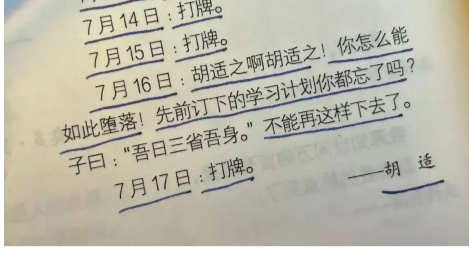 7月14日：打牌。
7月15日：打牌。
7月16日：胡适之啊胡适之！你怎么能
如此堕落！先前订下的学习计划你都忘了吗？
子曰：“吾日三省吾身。”不能再这样下去了。
7月17日：打牌。
——胡 适